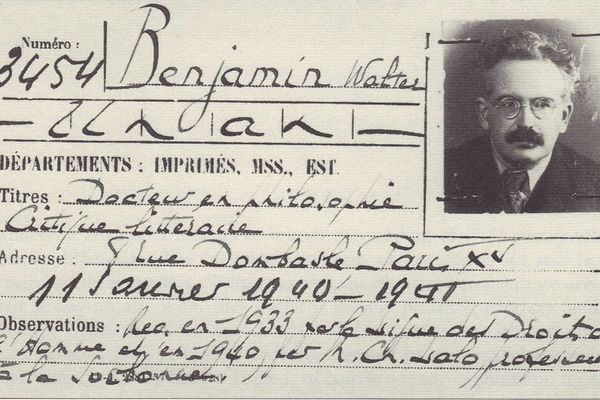 Numéro :
3454 Benjamin Walter
DÉPARTEMENTS : IMPRIMÉS, MSS., EST.
Titres : Docteur en philosophie
Critique littéraire
Adresse : rue Dombasle Paris XV
11 Janvier 1940 - 1941
Observations : Rec. en 1933 par la Ligue des Droits de
l'Homme et en 1940 par M. Ch. professeur
à la Sorbonne